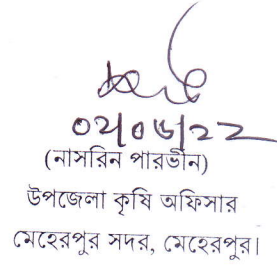 ০২/০৬/২২
(নাসরিন পারভীন)
উপজেলা কৃষি অফিসার
মেহেরপুর সদর, মেহেরপুর।